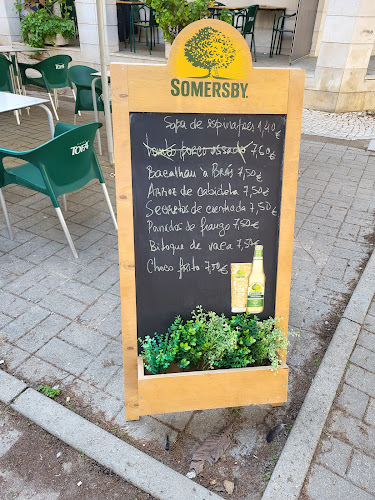 SOMERSBY.
Sopa de espinafres 1,40
porco assado 7,50€
Bacalhau à Brás 7,50€
Arroz de cabidela 7,50€
Secretos de cientada 7,50€
Panados de frango 7,50€
Bitoque de vaca 7,50€
Choco frito 7,50€